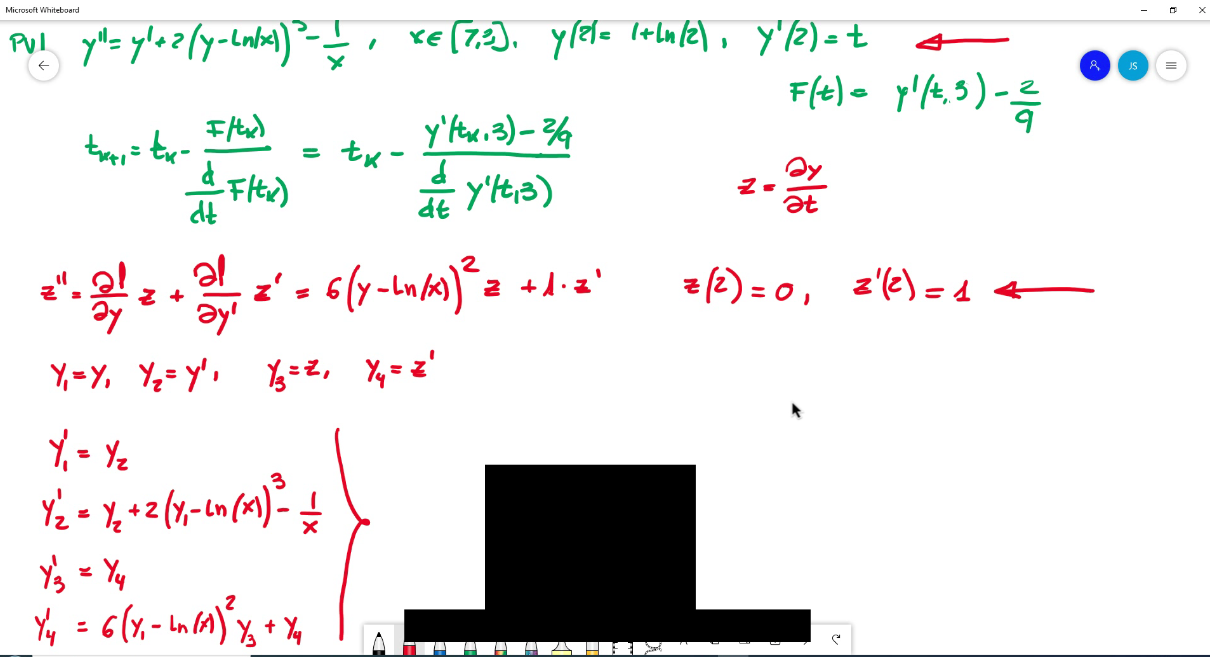 Microsoft Whiteboard
PVI y'' = y' + 2(y - Ln(x))³ - 1/x , x ∈ [7,3], y(2) = 1 + Ln(2), y'(2) = t
JS
F(t) = y'(t,3) - 2/9
t_{k+1} = t_k - F(t_k) / (d/dt F(t_k)) = t_k - (y'(t_k,3) - 2/9) / (d/dt y'(t,3))
z = ∂y/∂t
z'' = ∂f/∂y z + ∂f/∂y' z' = 6(y - Ln(x))² z + 1 · z' z(2) = 0, z'(2) = 1
y₁ = y, y₂ = y', y₃ = z, y₄ = z'
y₁' = y₂
y₂' = y₂ + 2(y₁ - Ln(x))³ - 1/x
y₃' = y₄
y₄' = 6(y₁ - Ln(x))² y₃ + y₄